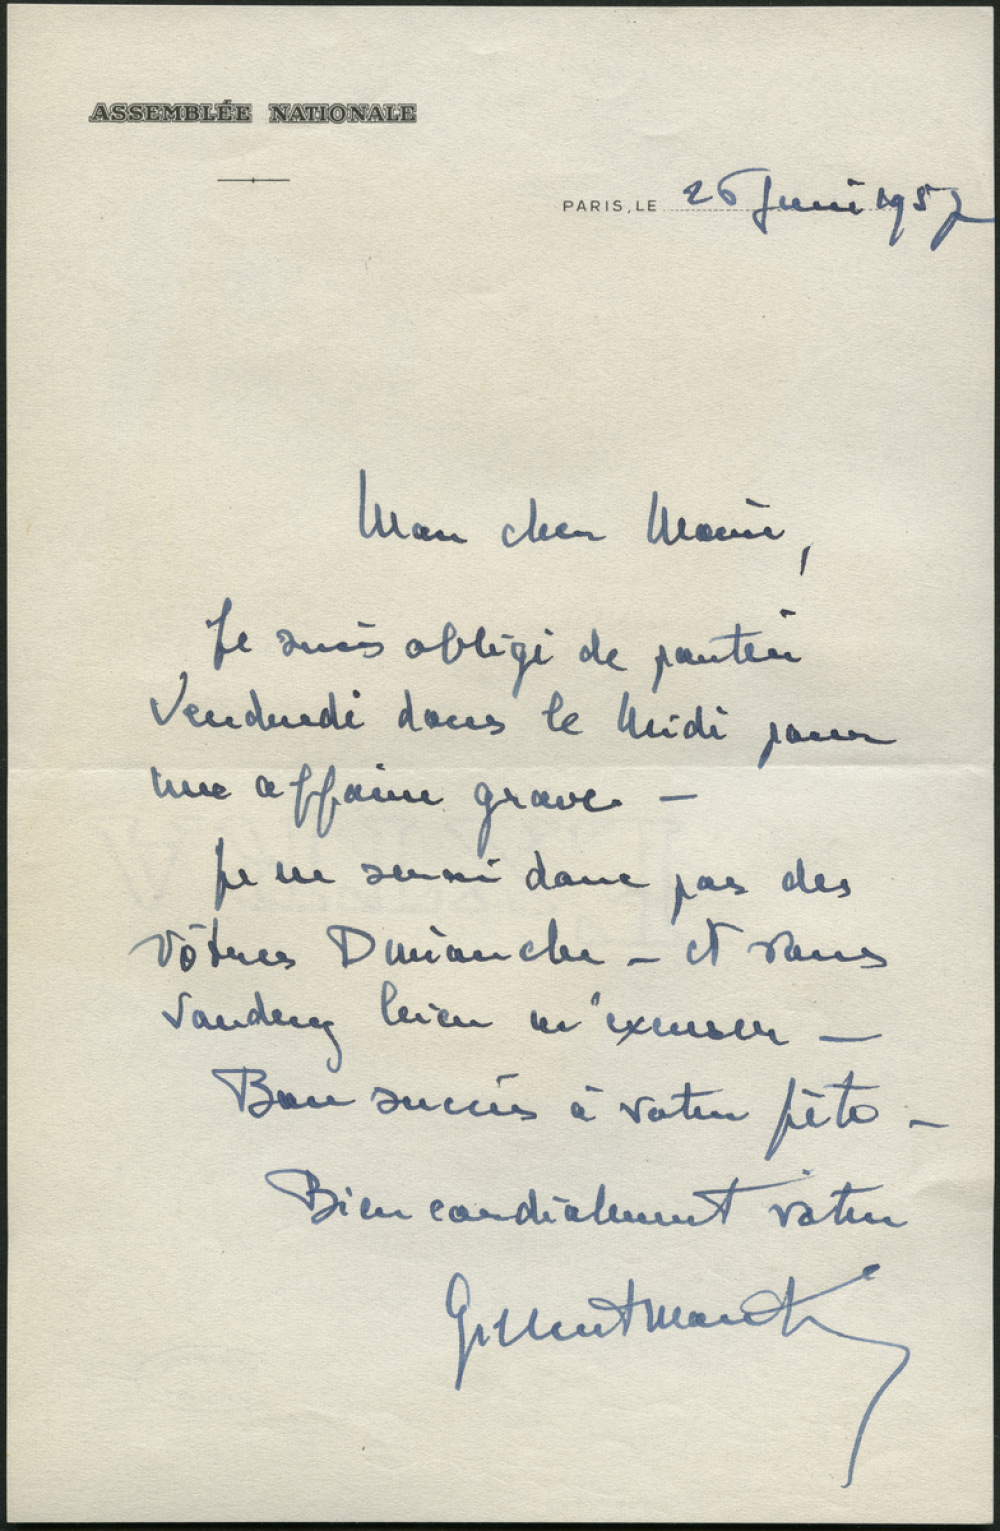 ASSEMBLÉE NATIONALE
PARIS, LE 26 Juin 1957
Mon cher Maire,
Je suis obligé de partir
Vendredi dans le Midi pour
une affaire grave —
Je ne serai donc pas des
vôtres Dimanche — et vous
voudrez bien m'excuser —
Bon succès à votre fête —
Bien cordialement votre